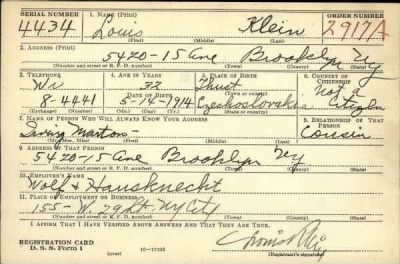 SERIAL NUMBER 1. NAME (Print) ORDER NUMBER
4434 Louis Klein 2917A
(First) (Middle) (Last)
2. ADDRESS (Print)
5420-15 Ave Brooklyn Ny
(Number and street or R. F. D. number) (Town) (County) (State)
3. TELEPHONE 4. AGE IN YEARS 5. PLACE OF BIRTH 6. COUNTRY OF CITIZENSHIP
Wi 32 Not a
8-4441 DATE OF BIRTH (Town or county) Citizen
5-14-1914 Czechoslovakia
(Exchange) (Number) (Mo.) (Day) (Yr.) (State or country)
7. NAME OF PERSON WHO WILL ALWAYS KNOW YOUR ADDRESS 8. RELATIONSHIP OF THAT PERSON
Irving Marton Cousin
(Mr., Mrs., Miss) (First) (Middle) (Last)
9. ADDRESS OF THAT PERSON
5420-15 Ave Brooklyn Ny
(Number and street or R. F. D. number) (Town) (County) (State)
10. EMPLOYER'S NAME
Wolf & Hausknecht
11. PLACE OF EMPLOYMENT OR BUSINESS
155-W. 29 St. Ny City
(Number and street or R. F. D. number) (Town) (County) (State)
I AFFIRM THAT I HAVE VERIFIED ABOVE ANSWERS AND THAT THEY ARE TRUE.
REGISTRATION CARD
D. S. S. Form 1 (over) 16-17105 Louis Klein
(Registrant's signature)